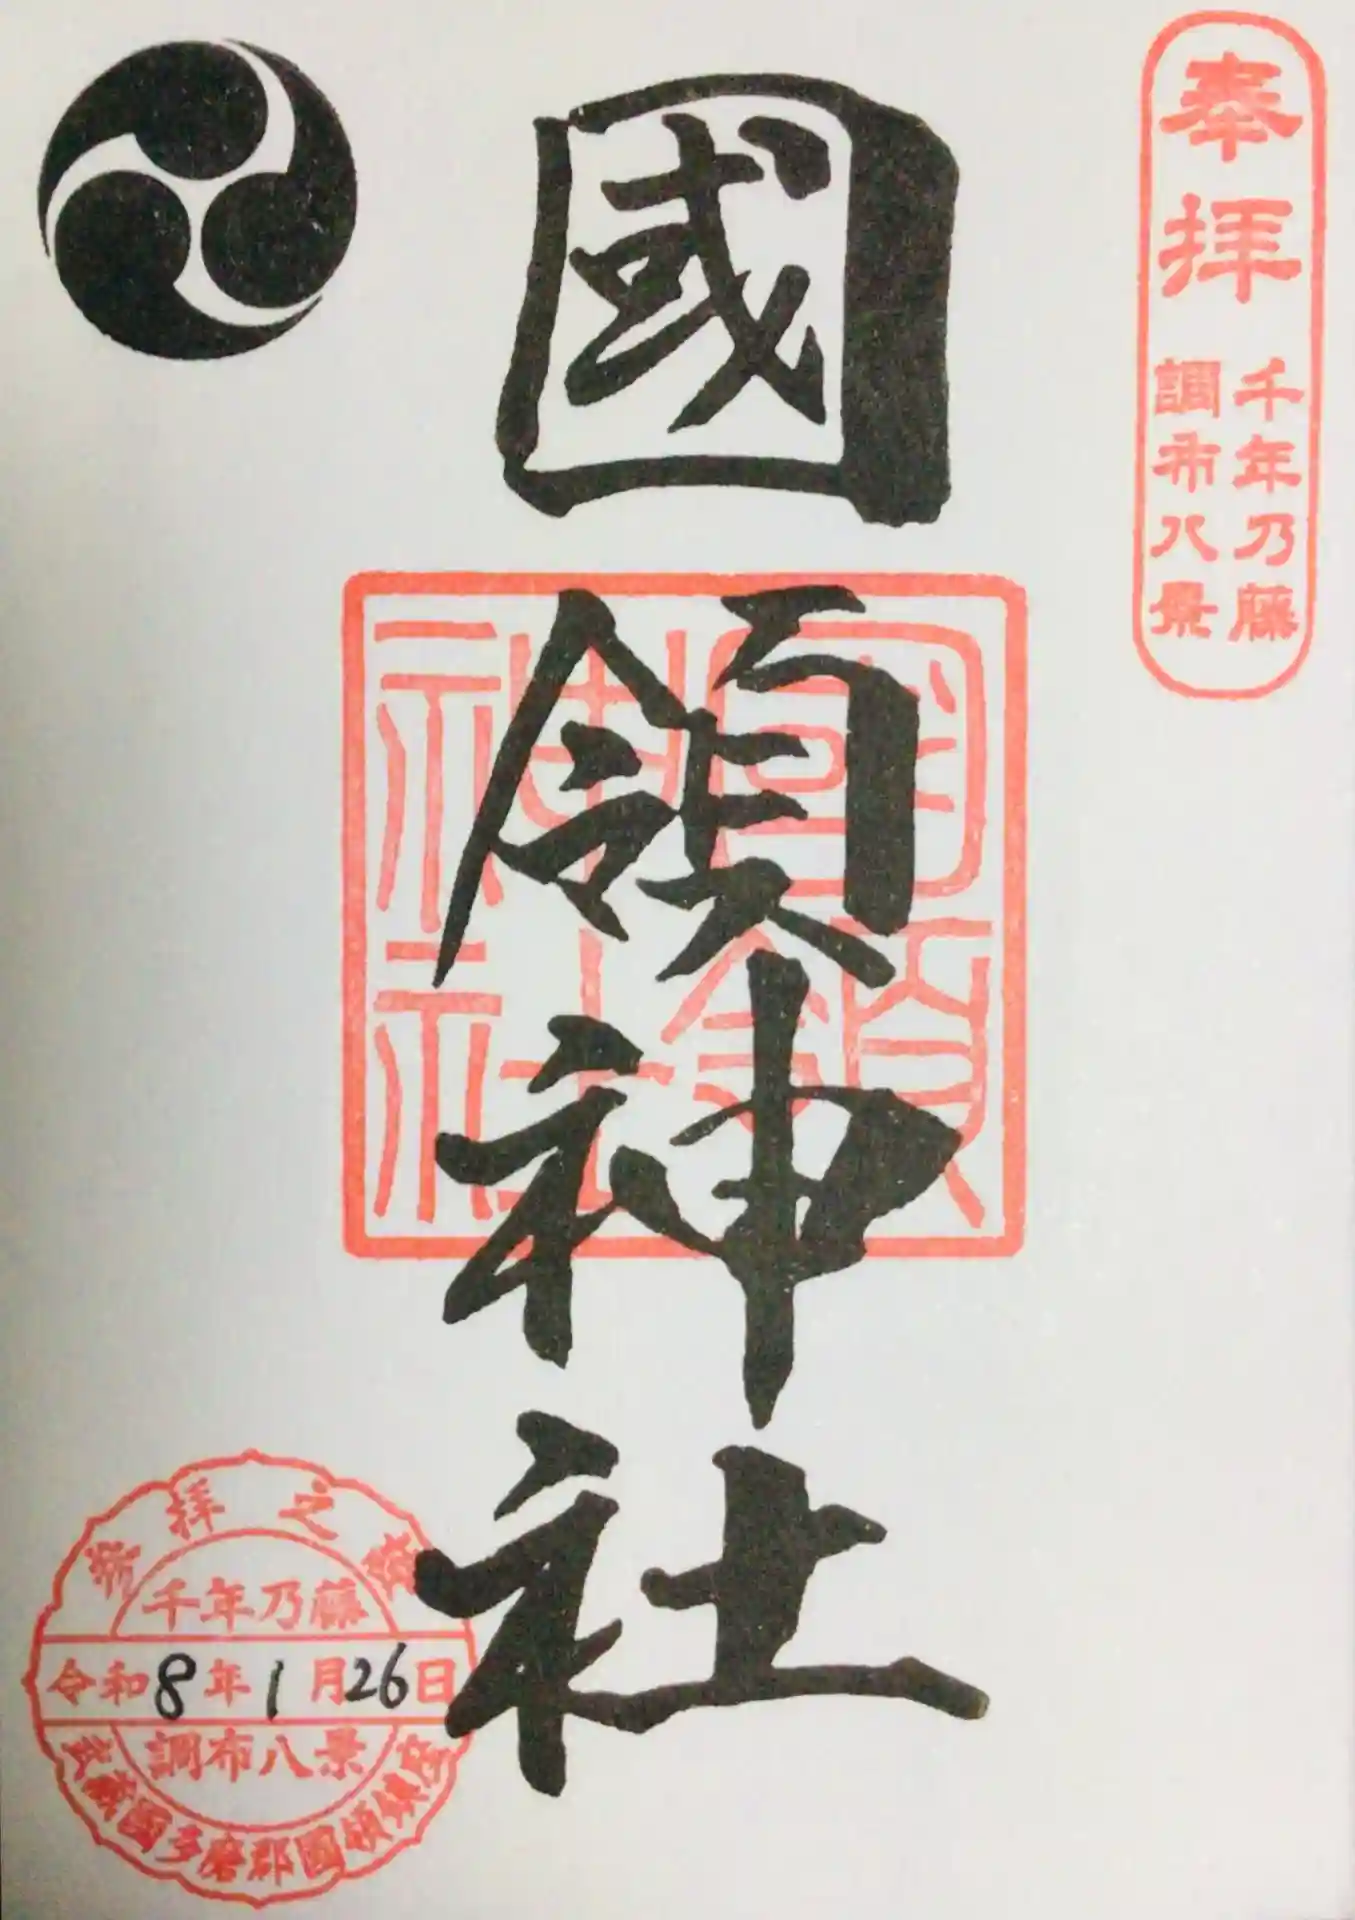 奉拝
千年乃藤
調布八景
國領神社
國領
神社
参拝之證
千年乃藤
令和8年1月26日
調布八景
武蔵國多磨郡國領鎮座